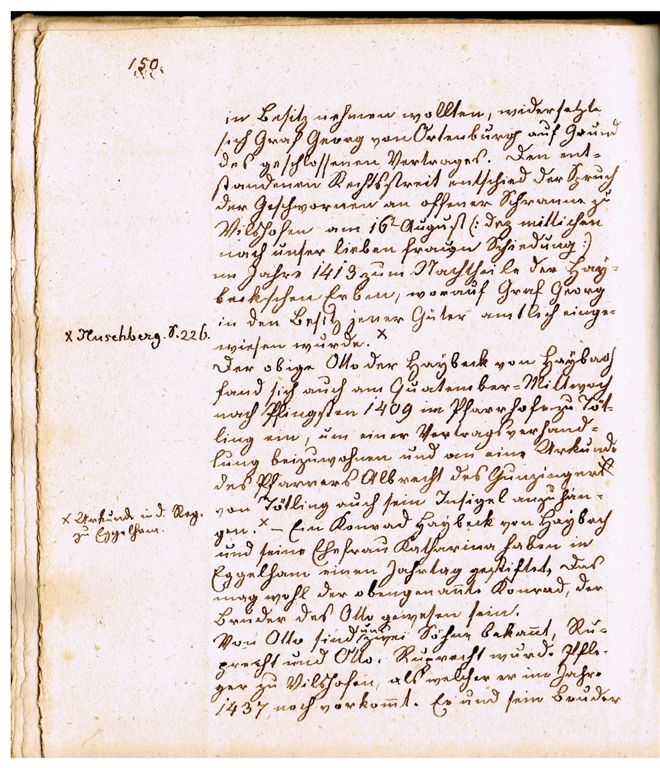 150.
in Besitz nehmen wollten, widersetzte
sich Graf Georg von Ortenburg auf Grund
des geschlossenen Vertrages. Den ent-
standenen Rechtsstreit entschied der Spruch
der Geschwornen an offener Schranne zu
Vilshofen am 16t August (: dez mittichen
nach unser lieben fraign Schiedung :)
im Jahre 1413 zum Nachtheile der Hay-
beckschen Erben, worauf Graf Georg
in den Besitz jener Güter amtlich einge-
x Huschberg. S. 226.
wiesen wurde. x
Der obige Otto der Haybeck von Haybach
fand sich auch am Quatember-Mittwoch
nach Pfingsten 1409 im Pfarrhofe zu Töt-
ling ein, um einer Vertragsverhand-
lung beizuwohnen und an eine Urkunde
des Pfarrers Albrecht des Gunzinger
von Tötling auch sein Insigel anzuhän-
x Urkunde in d. Reg.
zu Eggelham.
gen. x – Ein Konrad Haybeck von Haybach
und seine Ehefrau Katharina haben in
Eggelham einen Jahrtag gestiftet, Das
mag wohl der obengenannte Konrad, der
Bruder des Otto gewesen sein.
Von Otto sind uns zwei Söhne bekannt, Ru-
precht und Otto. Ruprecht wurde Pfle-
ger zu Vilshofen, als welcher er im Jahre
1437 noch vorkommt. Er und sein Bruder